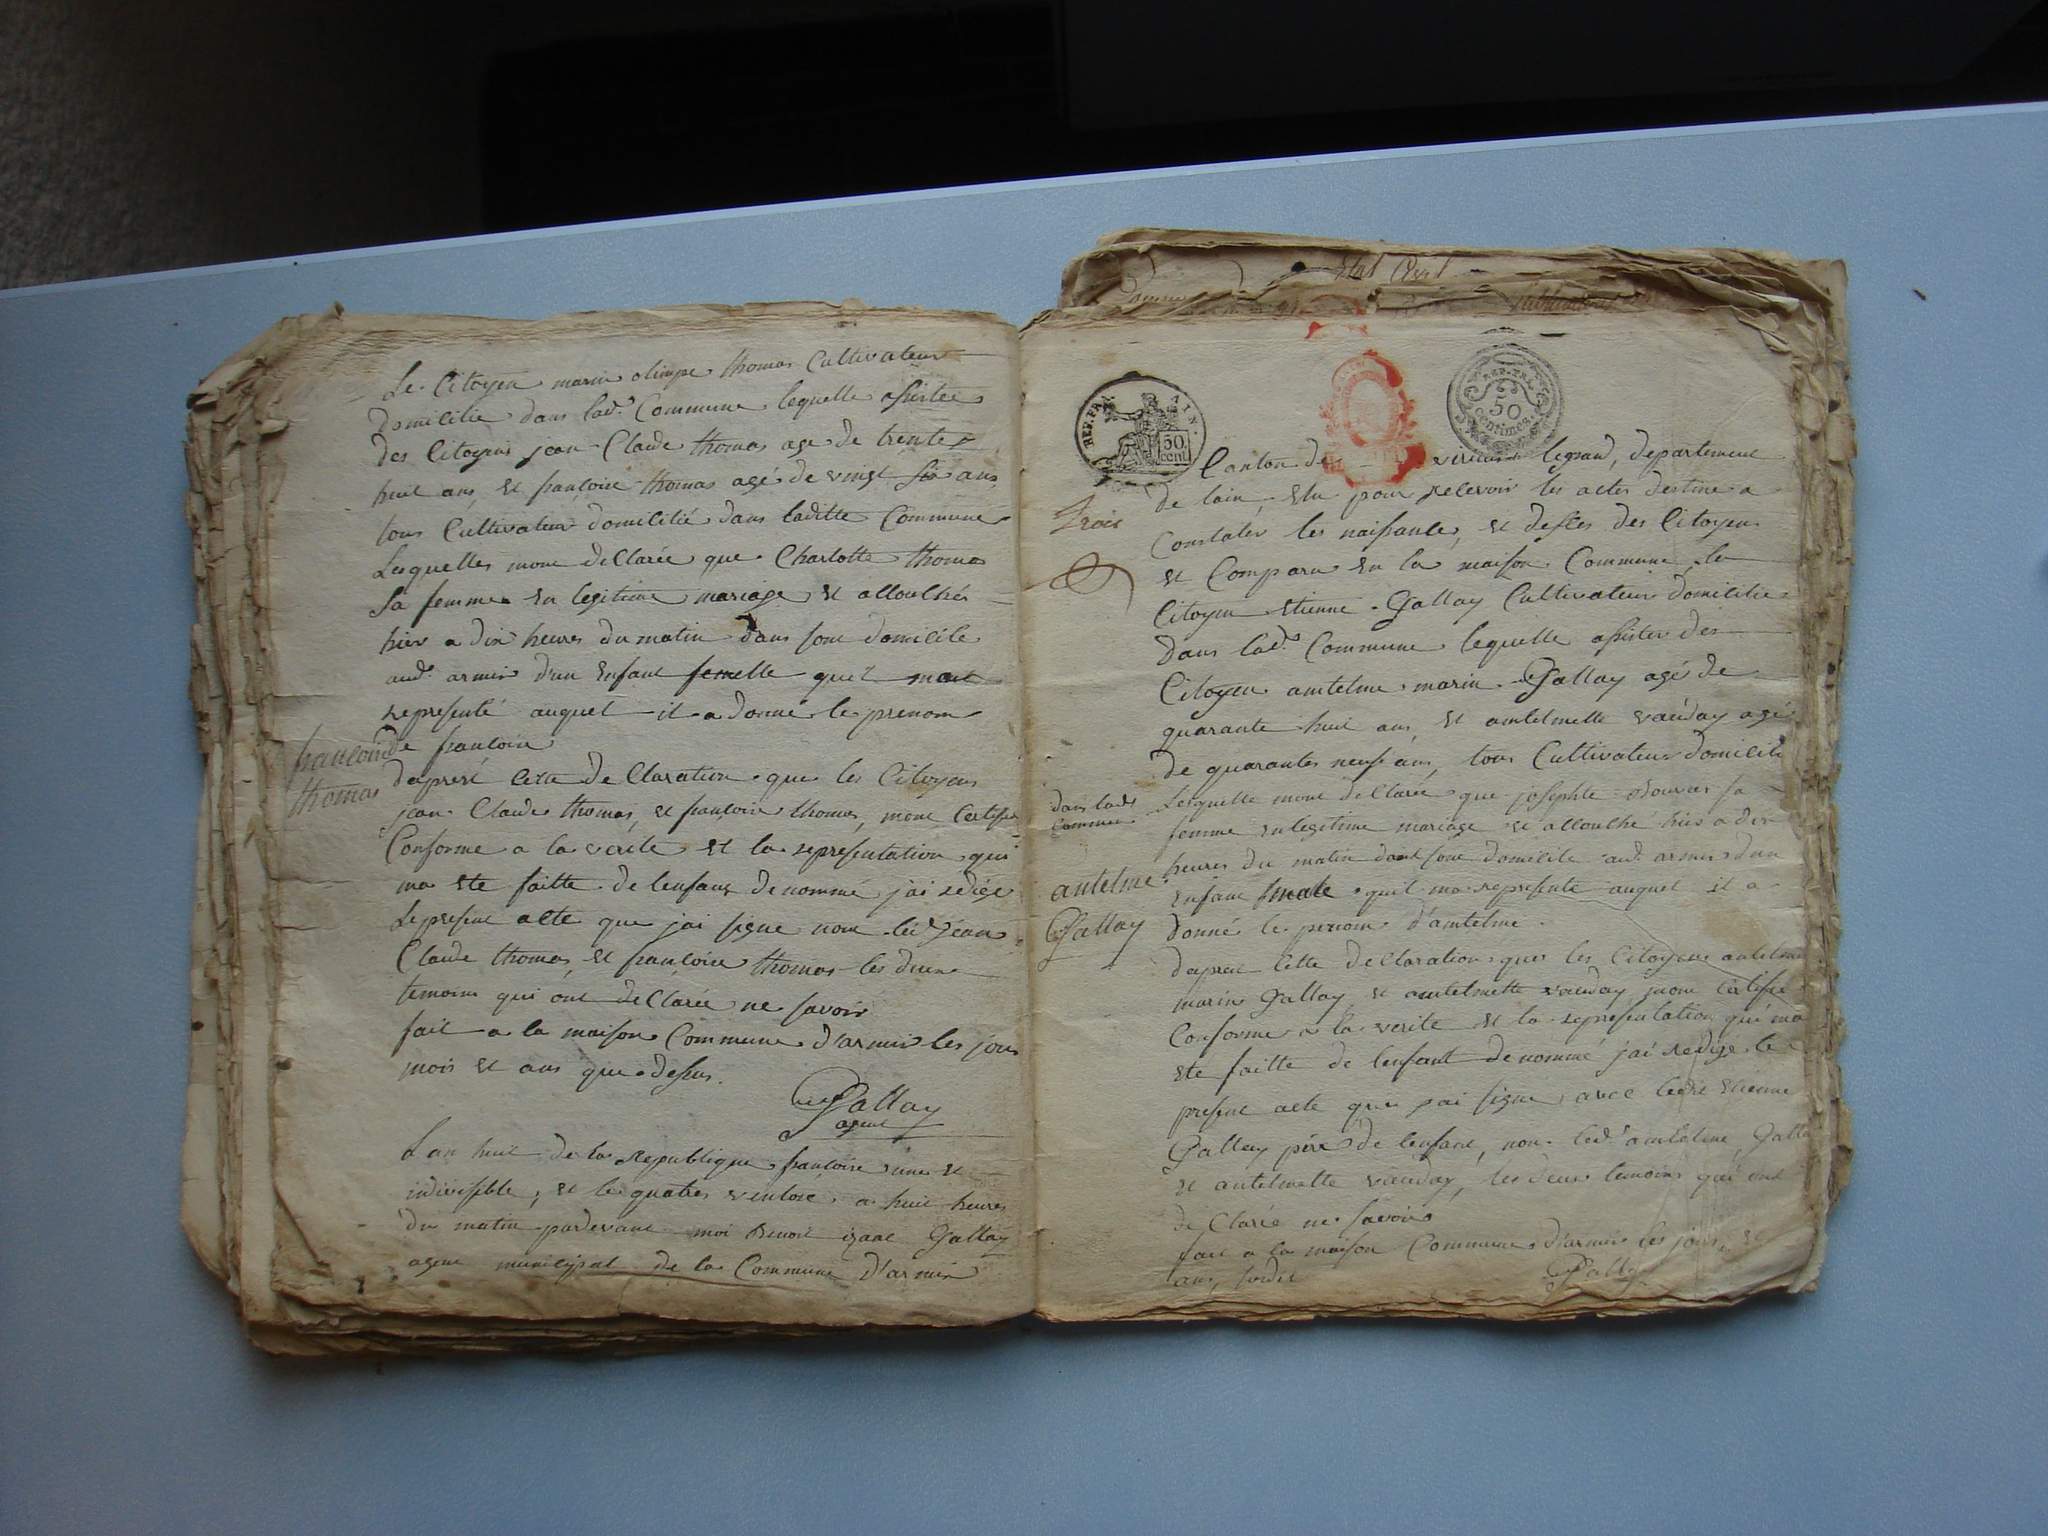 Le Citoyen marin olimpe thomas Cultivateur
domicilié dans lad.e Commune lequelle assistée
des Citoyens jean Claude thomas agé de trente
huit ans, et françoise thomas agé de vingt six ans
tous Cultivateur domicilié dans laditte Commune
Lesquelles mont déClarée que Charlotte thomas
Sa femme en legitime mariage et allouchés
hier a dix heures du matin dans sont domicile
aud. armix d'un Enfant femelle quil mont
representé auquel il a donné le prenom
de françoise
françoise
thomas
dapresé Cette deClaration que les Citoyens
jean Claude thomas, et françoise thomas, mont Certifié
Conforme a la verité et la representation qui
ma ete faitte de lenfant denommé j'ai redigé
Le present acte que jai signe nont led. jean
Claude thomas, et françoise thomas les deux
temoins qui ont deClarée ne savoir
fait a la maison Commune d'armix les jour
mois et ans que dessus.
Gallay
agent
Lan huit de la Republique françoise une et
indivisible, et le quatres ventose a huit heures
du matin pardevant moi Benoit izaac Gallay
agent municipal de la Commune d'armix
REP. FRA
AIN.
50
cent
REP. FRA.
50
centimes.
Canton de virieu legrand, departement
de lain, Elu pour recevoir les actes destiné a
Constater les naissance, et desces des Citoyens
et Comparu en la maison Commune le
Citoyen etienne Gallay Cultivateur domicilié
dans lad.e Commune lequelle assister des
Citoyen antelme marin Gallay agé de
quarante huit ans, et antelmette vauday agé
de quarantes neuf ans, tous Cultivateur domicilié
dans lade
Commune
Lesquelle mont déClarée que josephte sa
femme en legitime mariage et allouché hier a dix
heures du matin dans sont domicile aud. armix d'un
Enfant male quil ma representé auquel il a
donné le prenom d'antelme.
antelme
Gallay
dapres Cette deClaration que les Citoyens antelme
marin Gallay et antelmette vauday mont Certifié
Conforme a la verité et la representation qui ma
ete faitte de lenfant denommé j'ai redigé le
present acte que jai signe avec ledit Etienne
Gallay pere de lenfant, non led. antelme Gallay
et antelmette vauday, les deux temoins qui ont
deClarée ne savoir
fait a la maison Commune d'armix les jour, et
ans, susdit
Gallay